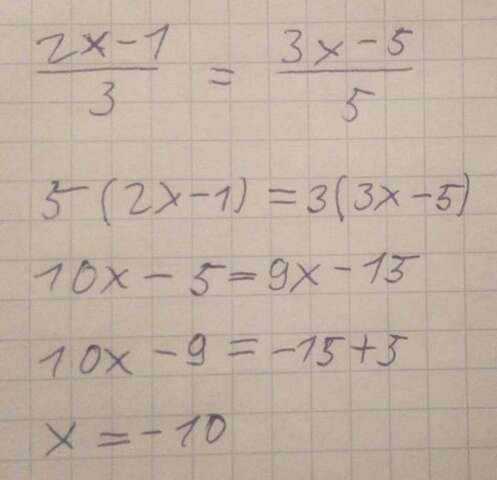 2x-1/3 = 3x-5/5
5(2x-1)=3(3x-5)
10x-5=9x-15
10x-9=-15+5
x=-10